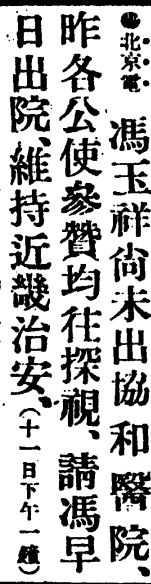 ●北京電　馮玉祥尙未出協和醫院、
昨各公使參贊均往探視、請馮早
日出院、維持近畿治安、（十一日下午一鐘）